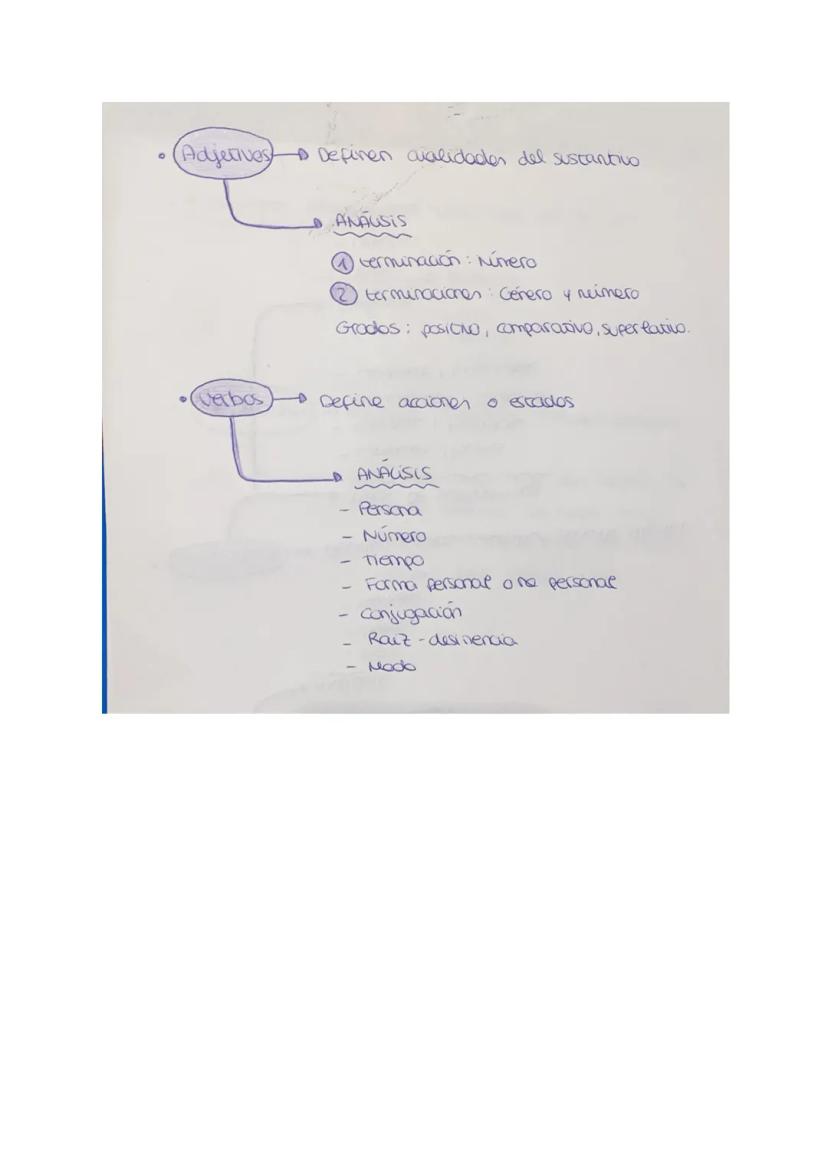 • Adjetivos → Definen cualidades del sustantivo
ANÁLISIS
① terminación: Número
② terminaciones: Género y número
Grados: positivo, comparativo, superlativo.
• Verbos → Define acciones o estados
ANÁLISIS
- Persona
- Número
- Tiempo
- Forma personal o no personal
- Conjugación
- Raíz - desinencia
- Modo